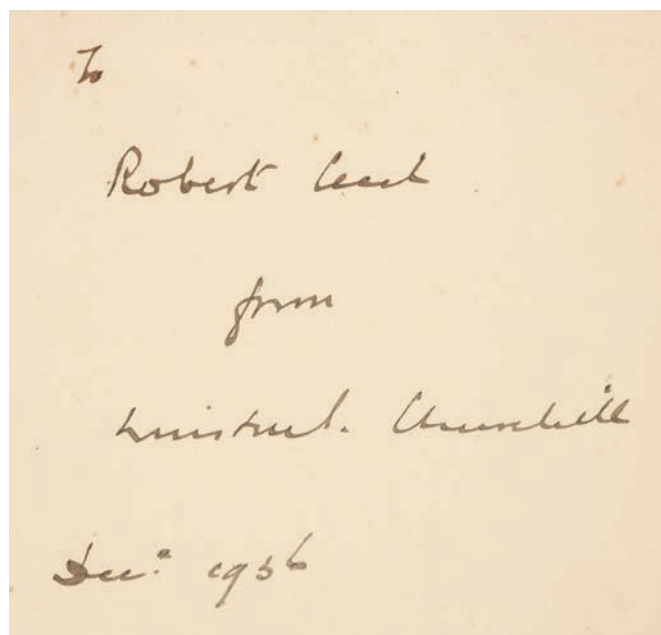 To
Robert Cecil
from
Winston S. Churchill
Dec: 1936